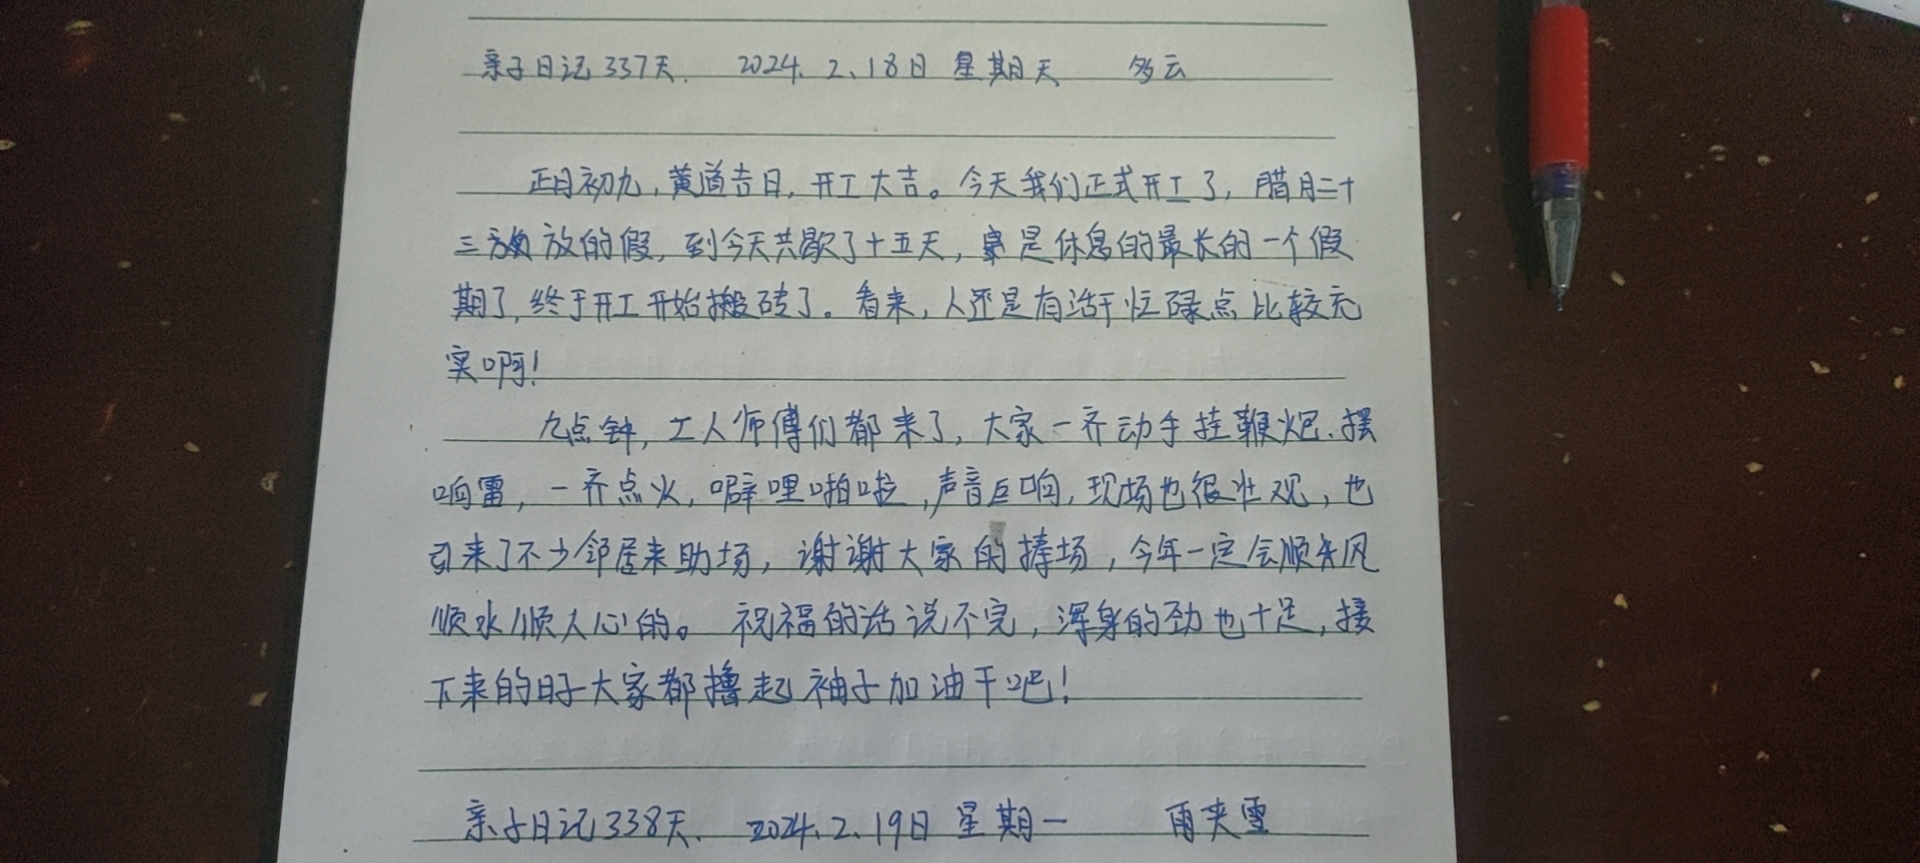 亲子日记337天. 2024.2.18日 星期天 多云
正月初九,黄道吉日,开工大吉。今天我们正式开工了,腊月二十
三放的假,到今天共歇了十五天,是休息的最长的一个假
期了,终于开工开始搬砖了。看来,人还是有活干忙碌点比较充
实啊!
九点钟,工人师傅们都来了,大家一齐动手挂鞭炮.摆
响雷,一齐点火,噼哩啪啦,声音巨响,现场也很壮观,也
引来了不少邻居来助场,谢谢大家的捧场,今年一定会顺风
顺水顺人心的。祝福的话说不完,浑身的劲也十足,接
下来的日子大家都撸起袖子加油干吧!
亲子日记338天. 2024.2.19日 星期一 雨夹雪